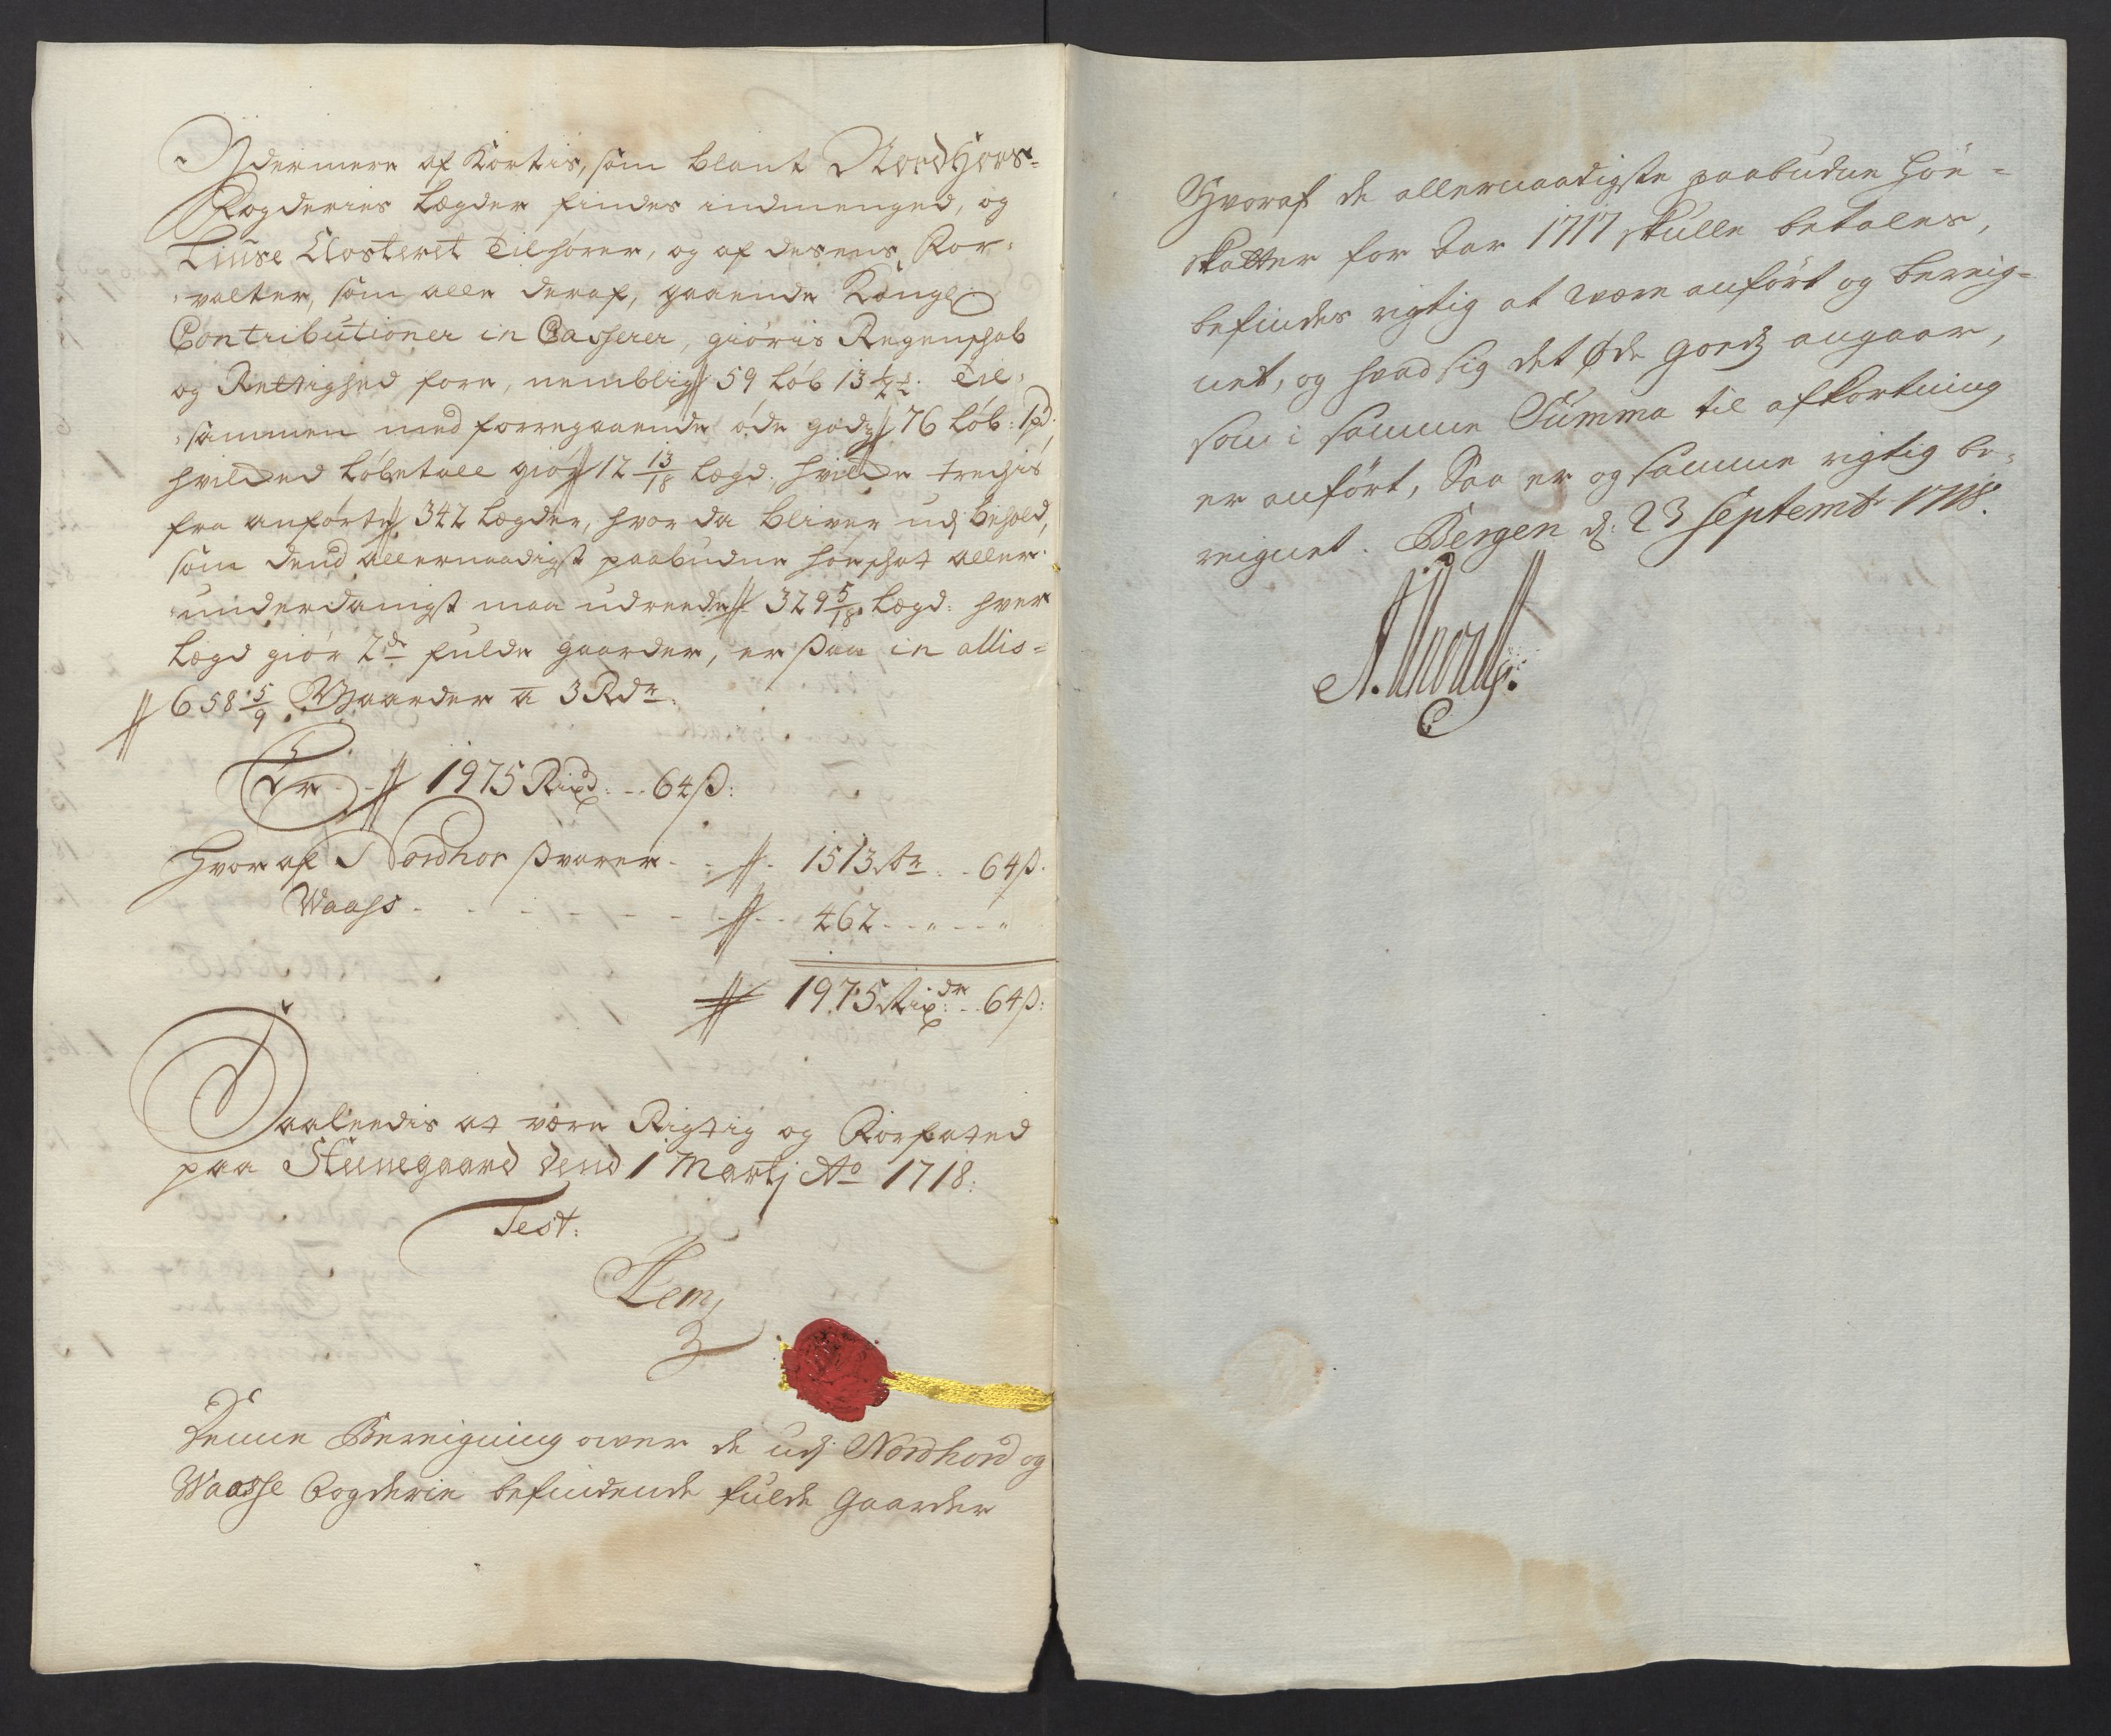 Ydermere af Kortis, som blant Nordhors-
Fogderies Lægder findes indmenged, og
Liuse Closteret Tilhører, og af desens For-
valter, som alle deraf, gaaende Kongl:
Contributioner in Casserer, giøris Regenschab
og Rettighed fore, nemblig 59 Løb 13 1/2 Til-
sammen med forregaaende øde godz 76 Løb: 1 pd:,
hvilched Løbetall giør 12 13/18 Lægd: hvilche trechis
fra anførte 342 Lægder, hvor da bliver udj behold,
som dend allernaadigst paabudne Hoeschat aller-
underdanigst maa udreede 329 5/18 Lægd: hver
Lægd giør 2de fulde gaarder, er ßaa in allis-
658 5/9 Gaarder a 3 Rdr
Er - 1975 Rixd: - 64 ß:
Hvoraf Nordhor ßvarer - 1513 Rdr - 64 ß.
Waass - 462 - " - "
1975 Rixdr: - 64 ß:
Saaleedis at være Rigtig og Forfated
paa Steenegaard dend 1 Martj Ao 1718:
Test:
Lem
Denne Bereigning over de udj Nordhord og
Waasse Fogderie befindende fulde Gaarder
Hvoraf de allernaadigste paabudne Hoe-
skatter for Aar 1717 skulle betales,
befindes rigtig at være anført og bereig-
net, og hvad sig det Øde Godz angaar,
som i samme Summa til afkortning
er anført, Saa er og samme rigtig be-
reignet. Bergen d: 23 Septembr 1718.